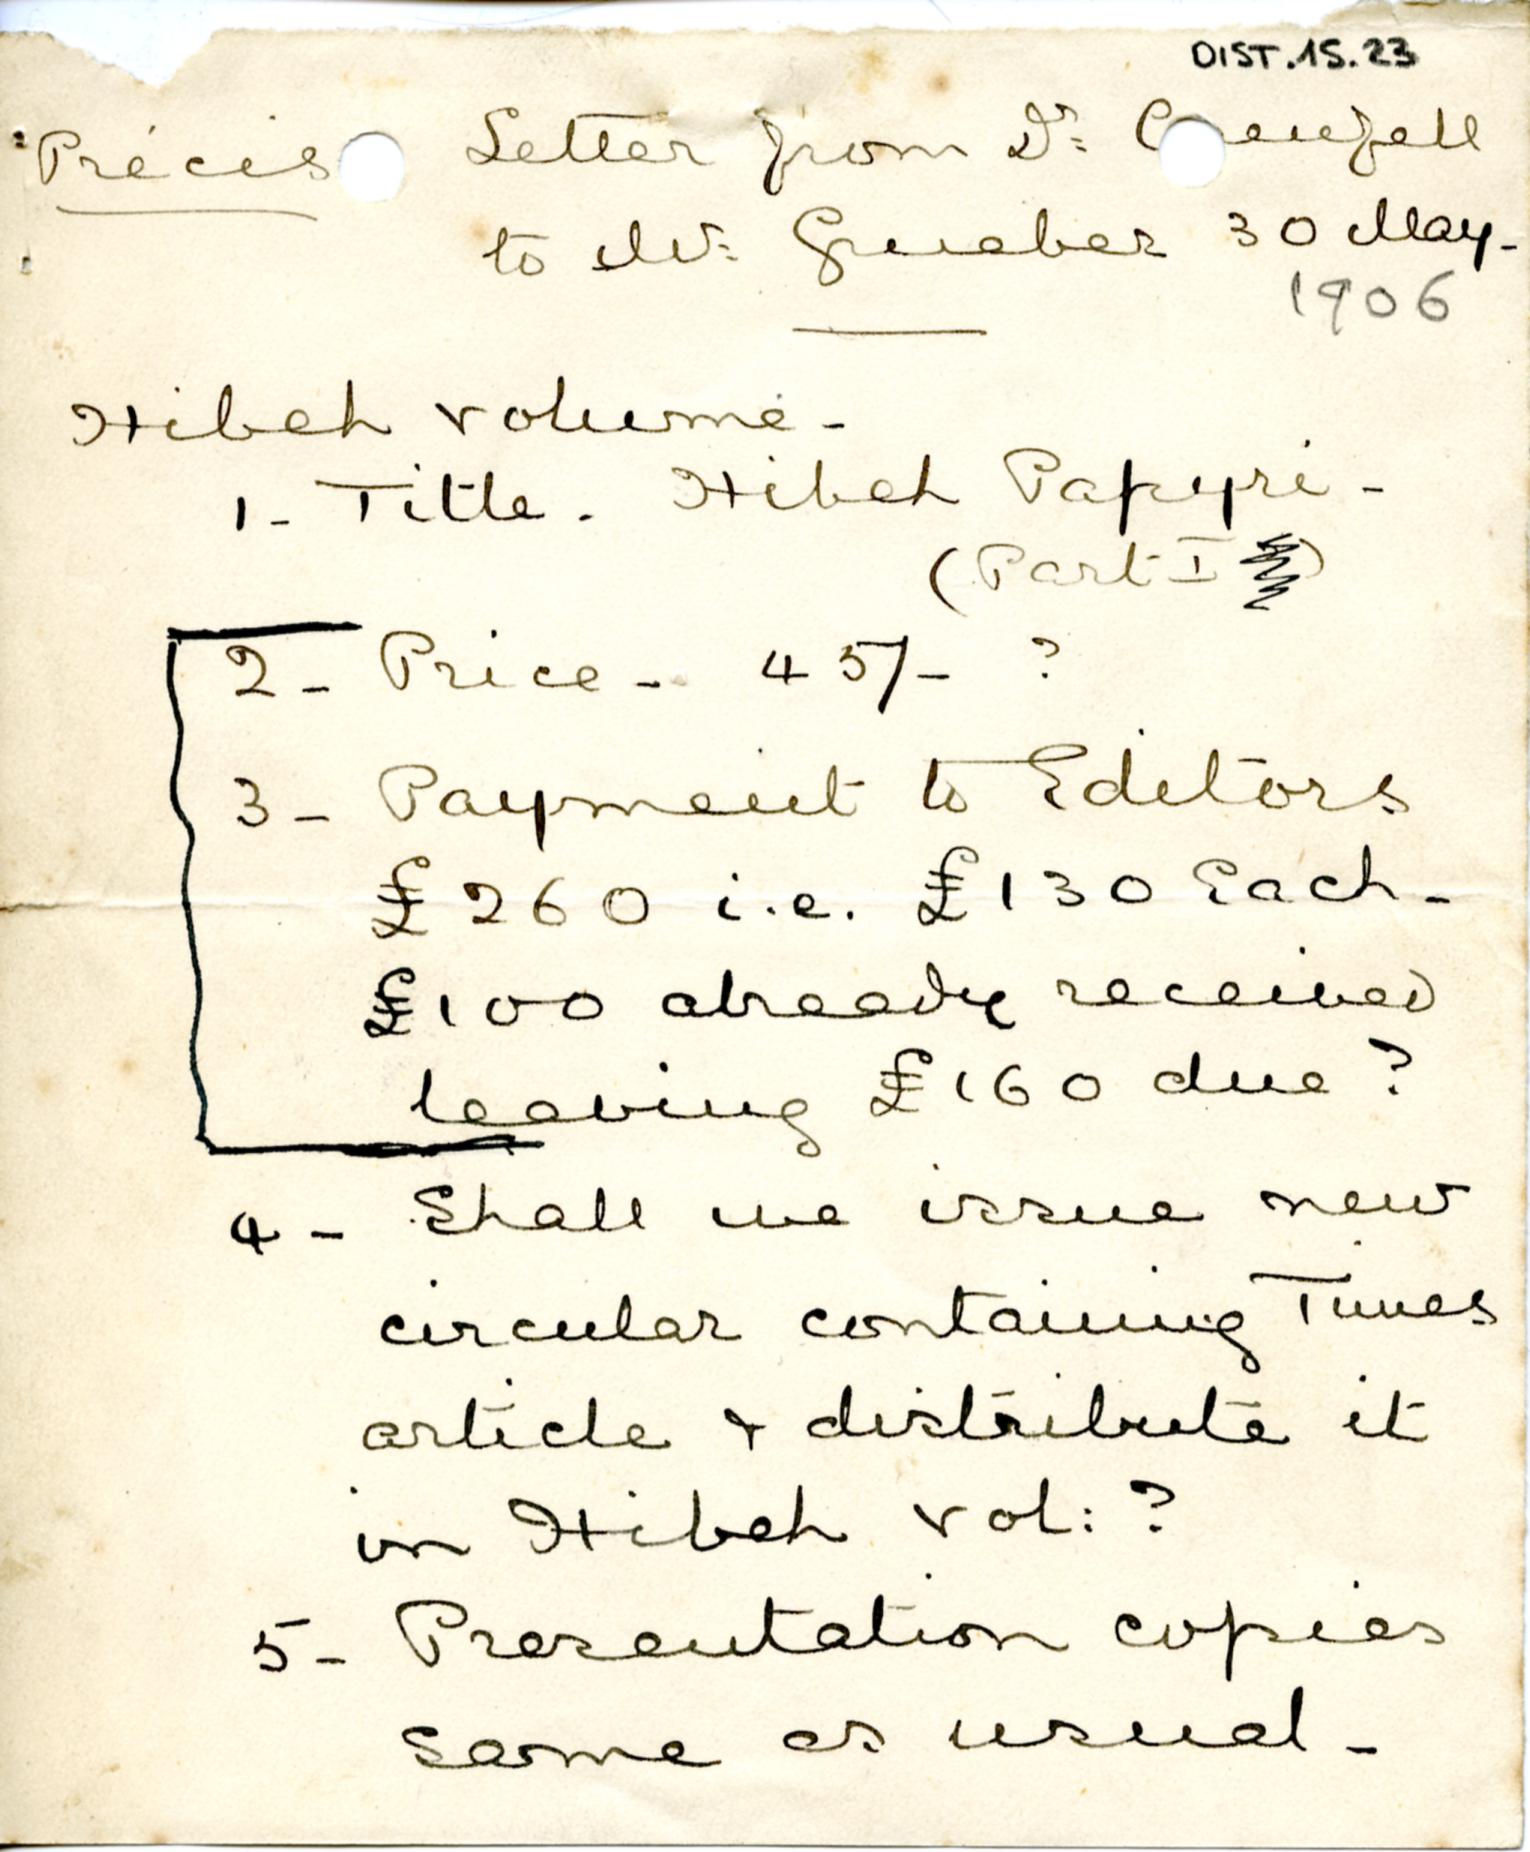 DIST.15.23
Précis Letter from Dr: Grenfell
to Mr: Grueber 30 May-
1906
Hibeh volume-
1- Title. Hibeh Papyri-
(Part I )
2- Price- 45/- ?
3- Payment to Editors
£260 i.e. £130 Each-
£100 already received
leaving £160 due?
4- Shall we issue new
circular containing Times
article & distribute it
in Hibeh vol: ?
5- Presentation copies
same as usual-